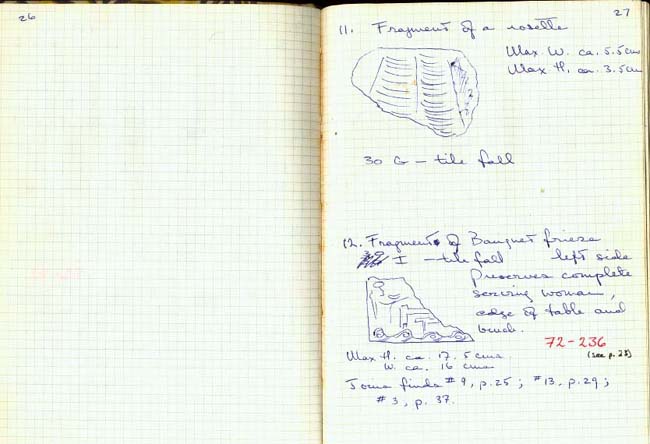 26
27
11. Fragment of a rosette
Max W. ca. 5.5 cms
Max H. ca. 3.5 cm
30 G — tile fall
12. Fragment of Banquet frieze
I — tile fall left side
Preserves complete
serving woman,
edge of table and
bench.
72-236
(see p. 28)
Max H. ca. 17.5 cms.
W. ca. 16 cms
Joins finds #9, p. 25; #13, p. 29;
#3, p. 37.